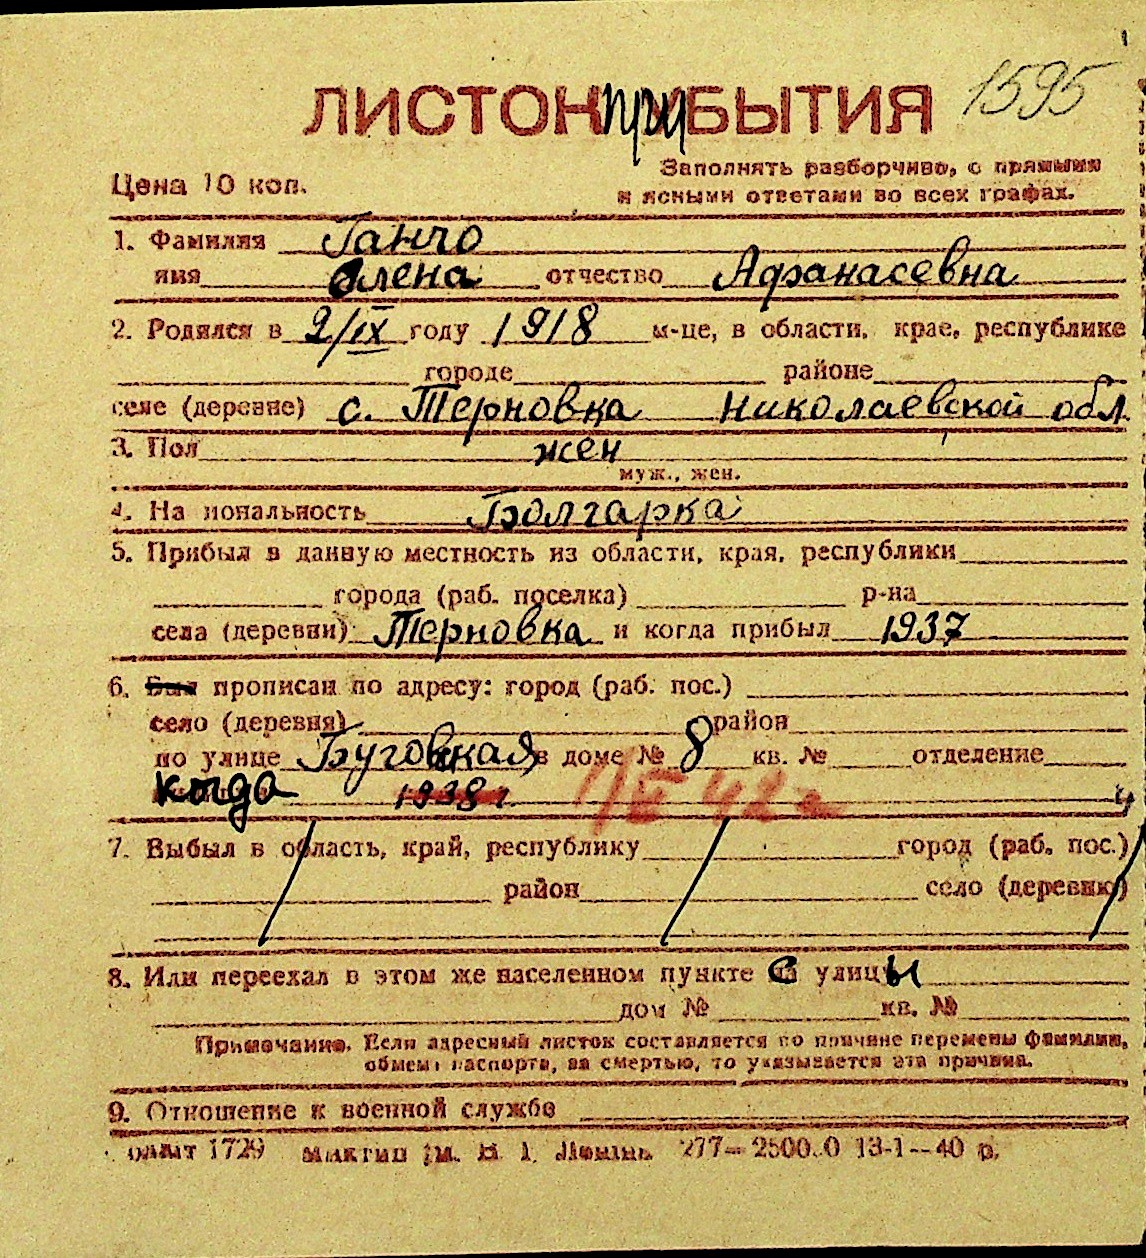 1595
ЛИСТОК ПРИБЫТИЯ
Цена 10 коп.
Заполнять разборчиво, с прямыми
и ясными ответами во всех графах.
1. Фамилия Ганчо
имя Олена отчество Афанасевна
2. Родился в 2/IX году 1918 м-це, в области, крае, республике
городе районе
селе (деревне) с. Терновка Николаевской обл.
3. Пол жен
муж., жен.
4. На иональность Болгарка
5. Прибыл в данную местность из области, края, республики
города (раб. поселка) р-на
села (деревни) Терновка и когда прибыл 1937
6. Был прописан по адресу: город (раб. пос.)
село (деревня) район
по улице Буговская в доме № 8 кв. № отделение
когда 1938 г 1/II 42 г
7. Выбыл в область, край, республику город (раб. пос.)
район село (деревню)
8. Или переехал в этом же населенном пункте с улицы
дом № кв. №
Примечание. Если адресный листок составляется по причине перемены фамилии,
обмена паспорта, за смертью, то указывается эта причина.
9. Отношение к военной службе
1729 277— 2500.0 13-1—40 р.